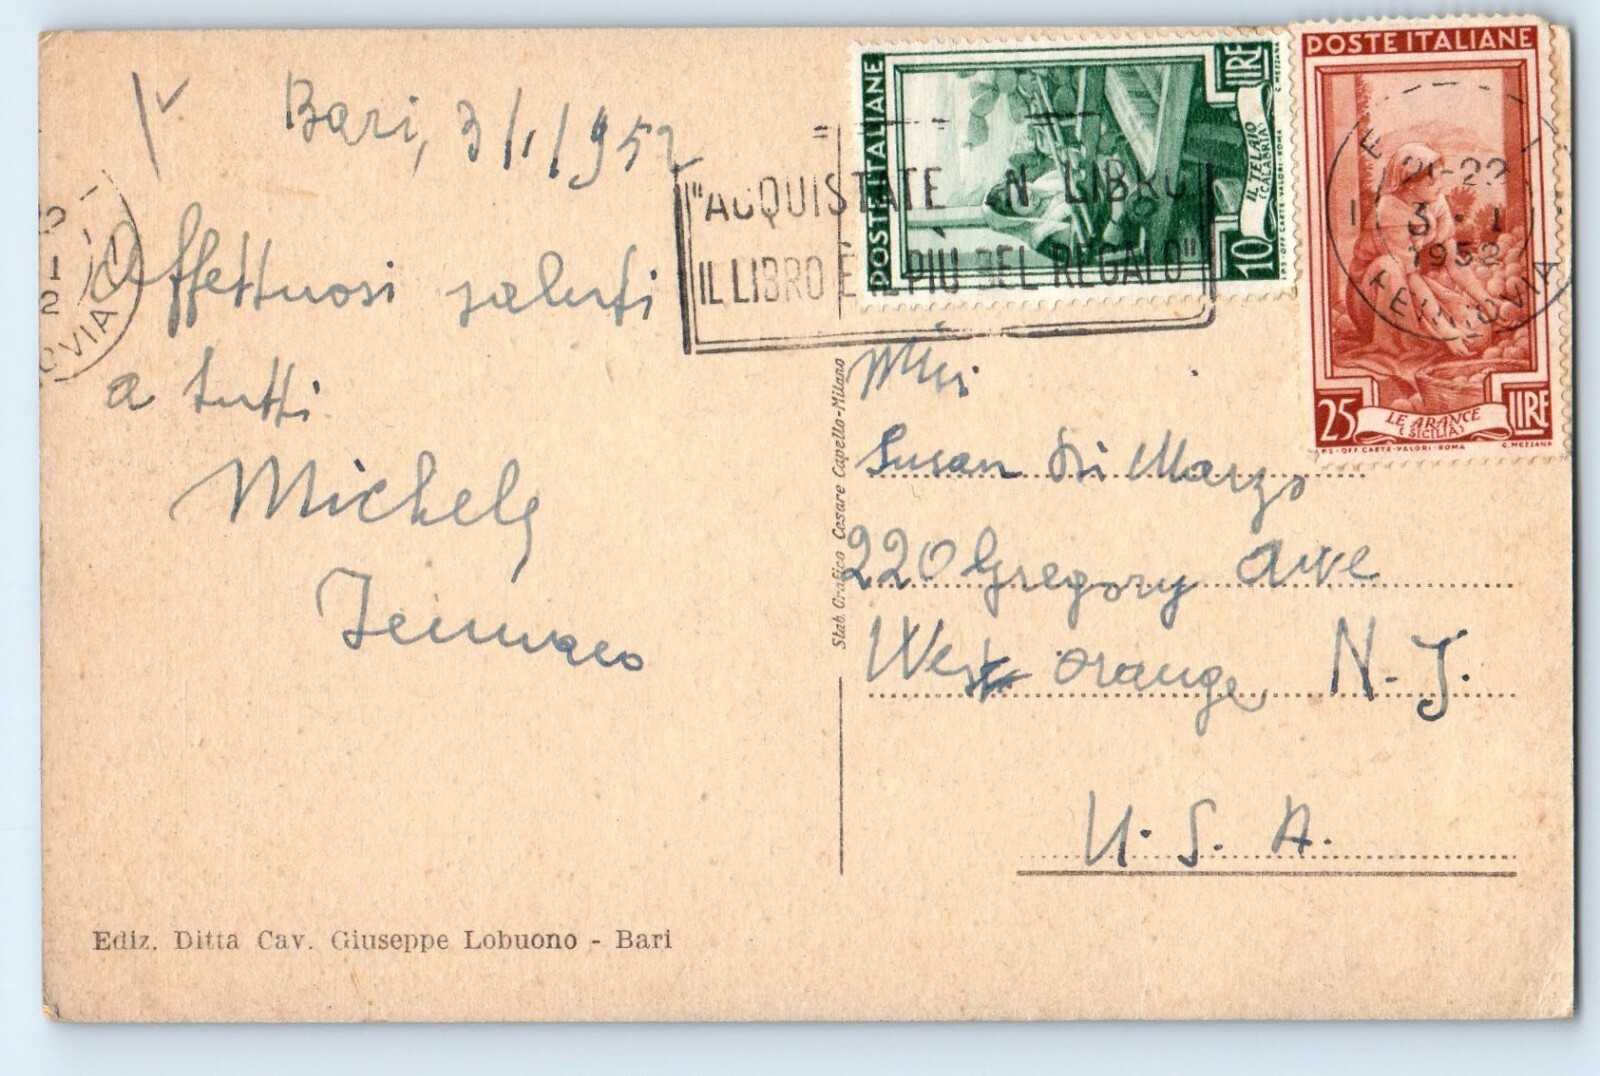 Bari, 3/1/1952
Affettuosi saluti
a tutti
Michele
"ACQUISTATE UN LIBRO
IL LIBRO È IL PIÙ BEL REGALO"
POSTE ITALIANE
10 LIRE
IL TELAIO
(CALABRIA)
I.P.S.-OFF.CARTE-VALORI-ROMA
C. MEZZANA
POSTE ITALIANE
25 LIRE
LE ARANCE
(SICILIA)
I.P.S-OFF.CARTE-VALORI-ROMA
C. MEZZANA
21-22
3 · 1
1952
FERROVIA
Susan Di Marzo
220 Gregory Ave
West Orange N. J.
U. S. A.
Stab. Grafico Cesare Capello-Milano
Ediz. Ditta Cav. Giuseppe Lobuono - Bari